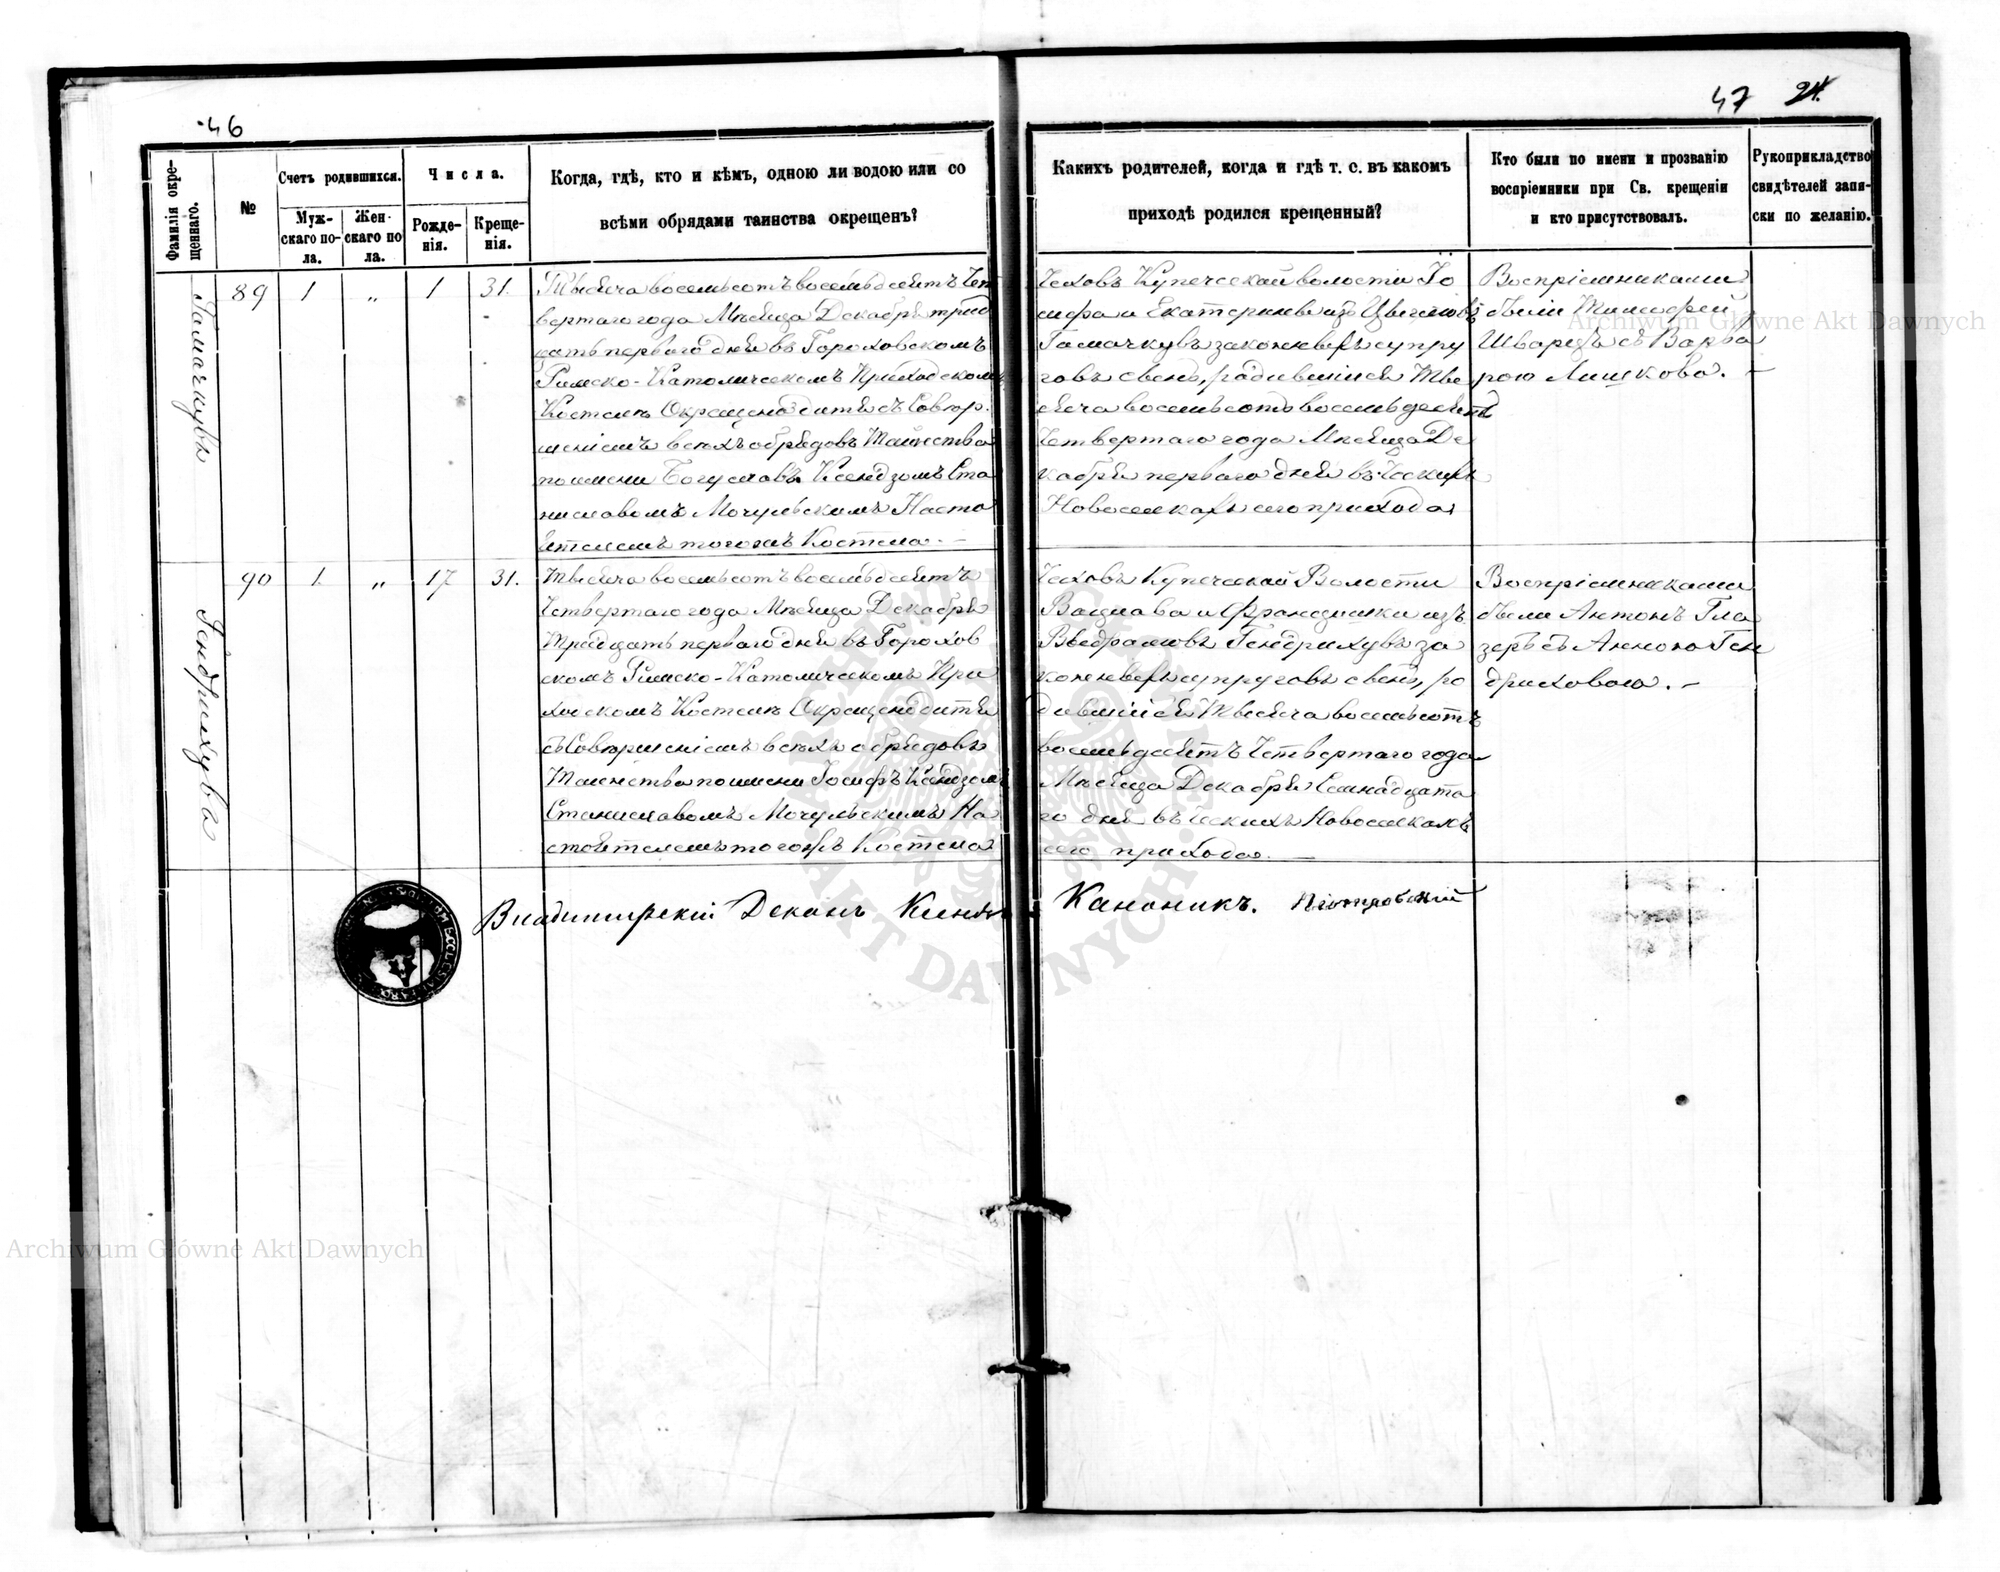 46
47 24.
Фамилія окре-
щеннаго.
№
Счетъ родившихся.
Муж-
скаго по-
ла.
Жен-
скаго по
ла.
Числа.
Рожде-
нія.
Креще-
нія.
Когда, гдѣ, кто и кѣмъ, одною ли водою или со
всѣми обрядами таинства окрещенъ?
Каких​ъ родителей, когда и гдѣ т. с. въ какомъ
приходѣ родился крещенный?
Кто были по имени и прозванію
воспріемники при Св. крещеніи
и кто присутствовалъ.
Рукоприкладство
свидѣтелей запи-
ски по желанію.
89 1 „ 1 31.
Тысяча восемьсотъ восемьдесятъ чет
вертаго года Мѣсяца Декабря трид
цать перваго дня въ Гороховскомъ
Римско-Католическомъ Приходскомъ
Костелѣ Окрещено дитя съ Совер
шеніемъ всѣхъ обрядовъ Таинства
по имени Богуславъ Ксендзомъ Ста
ниславомъ Мочульскимъ Насто
ятелемъ тогожъ Костела. —
Чеховъ Купечской волости Іо
сифа и Екатерины изъ
Гамачкувъ законныхъ супру
говъ сынъ, родившійся Тыс
яча восемьсотъ восемьдесятъ
Четвертаго года Мѣсяца Де
кабря перваго дня въ Ческихъ
Новоселкахъ сего прихода
Воспріемниками
были Тимофей
Шварцъ съ Варва
рою Лишкова. —
90 1. „ 17 31.
Гендрихува
Тысяча восемьсотъ восемьдесятъ
Четвертаго года Мѣсяца Декабря
Тридцать перваго дня въ Горохов
скомъ Римско-Католическомъ При
ходскомъ Костелѣ Окрещено дитя
съ Совершеніемъ всѣхъ обрядовъ
Таинства по имени Іосифъ Ксендзомъ
Станиславомъ Мочульскимъ На
стоятелемъ тогожъ Костела
Чеховъ Купечской Волости
Вацлава и Францишки изъ
Гендрихувъ за
конныхъ супруговъ сынъ, ро
дившійся Тысяча восемьсотъ
восемьдесятъ Четвертаго года
Мѣсяца Декабря Семнадцата
го дня въ Ческихъ Новоселкахъ
сего прихода. —
Воспріемниками
были Антонъ Гла
зеръ съ Анною Ген
дриховою. —
Владимирскій Деканъ Каноникъ. Піотровскій
Archiwum Główne Akt Dawnych
Archiwum Główne Akt Dawnych